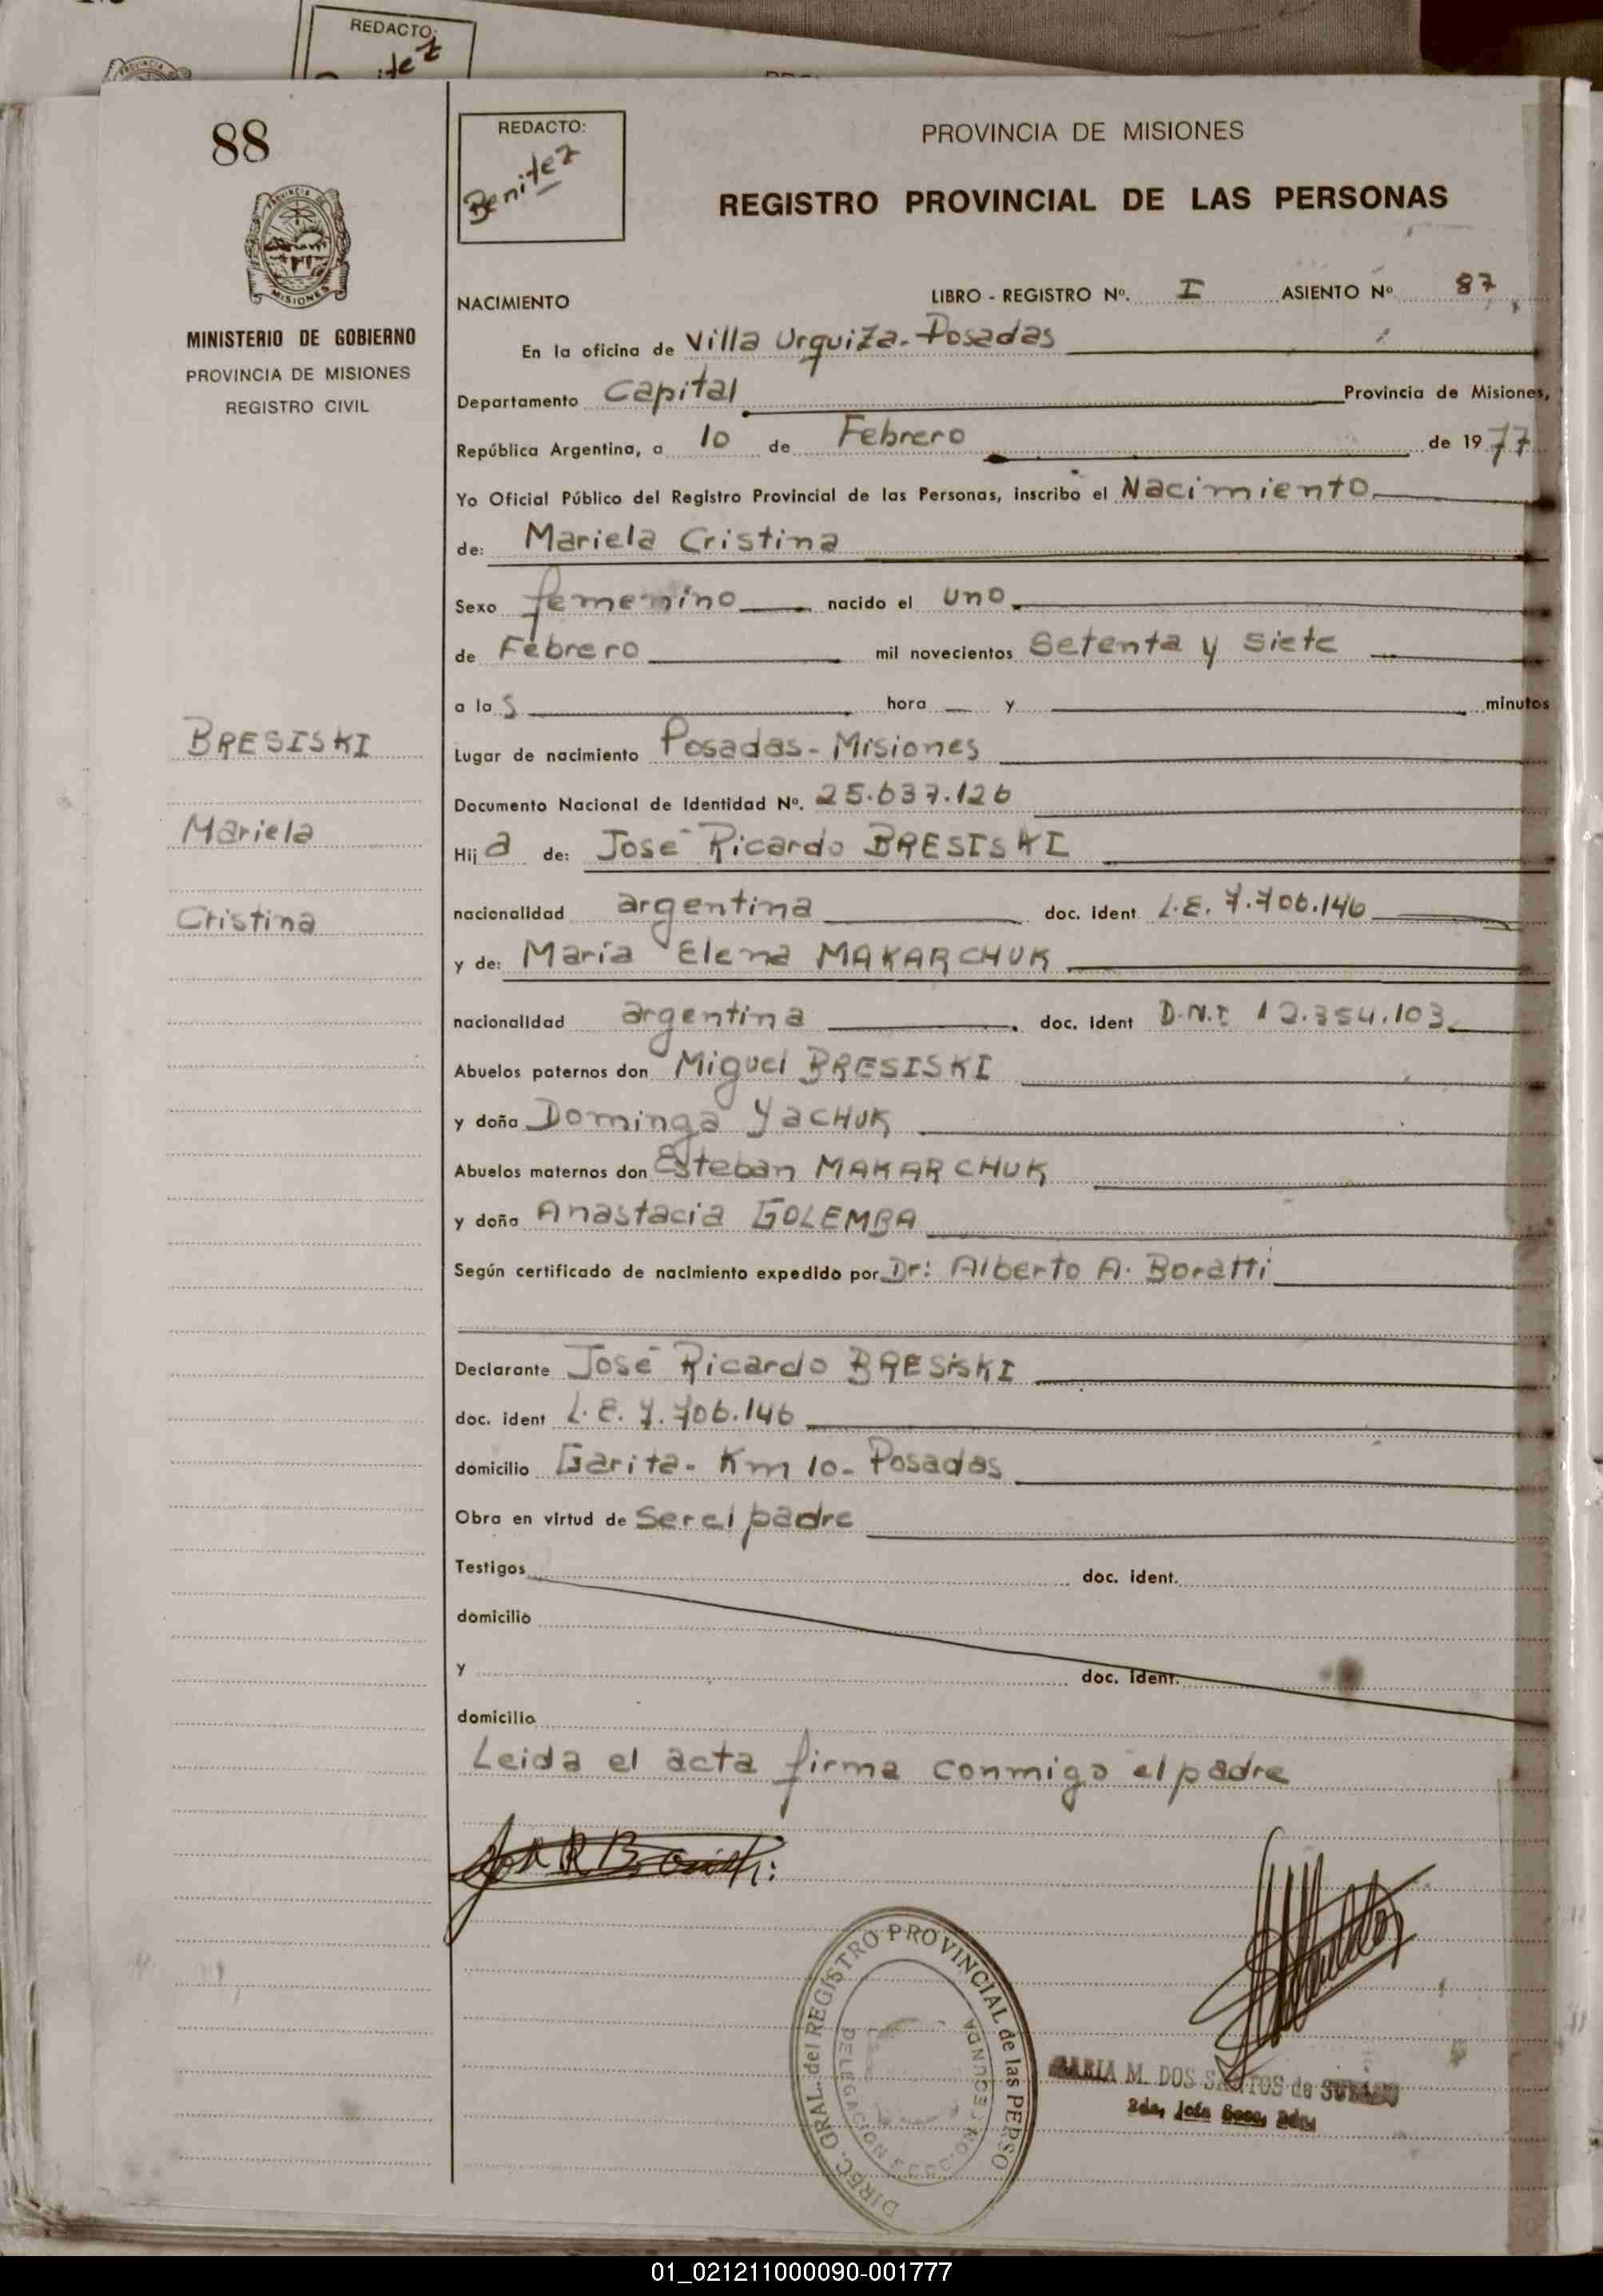 REDACTO:
88
REDACTO:
Benitez
PROVINCIA DE MISIONES
REGISTRO PROVINCIAL DE LAS PERSONAS
MISIONES
MINISTERIO DE GOBIERNO
PROVINCIA DE MISIONES
REGISTRO CIVIL
NACIMIENTO LIBRO - REGISTRO Nº. I ASIENTO Nº 87
En la oficina de Villa Urquiza. Posadas
Departamento Capital Provincia de Misiones,
República Argentina, a 10 de Febrero de 1977
Yo Oficial Público del Registro Provincial de las Personas, inscribo el Nacimiento
de: Mariela Cristina
Sexo femenino nacido el uno
de Febrero mil novecientos Setenta y Siete
a las hora y minutos
BRESISKI
Lugar de nacimiento Posadas - Misiones
Documento Nacional de Identidad Nº. 25.637.126
Mariela
Hija de: José Ricardo BRESISKI
Cristina
nacionalidad argentina doc. ident L.E. 7.706.146
y de: María Elena MAKARCHUK
nacionalidad argentina doc. ident D.N.I 12.354.103
Abuelos paternos don Miguel BRESISKI
y doña Dominga YaCHUK
Abuelos maternos don Esteban MAKARCHUK
y doña Anastacia GOLEMBA
Según certificado de nacimiento expedido por Dr: Alberto A. Boratti
Declarante José Ricardo BRESiSKI
doc. ident L.E. 7.706.146
domicilio Garita - Km 10 - Posadas
Obra en virtud de Ser el padre
Testigos doc. ident.
domicilio
y doc. ident.
domicilio
Leida el acta firma conmigo el padre
DIREC. GRAL. del REGISTRO PROVINCIAL de las PERSO
DELEGACION SECCION SEGUNDA
MARIA M. DOS SANTOS de
01_021211000090-001777